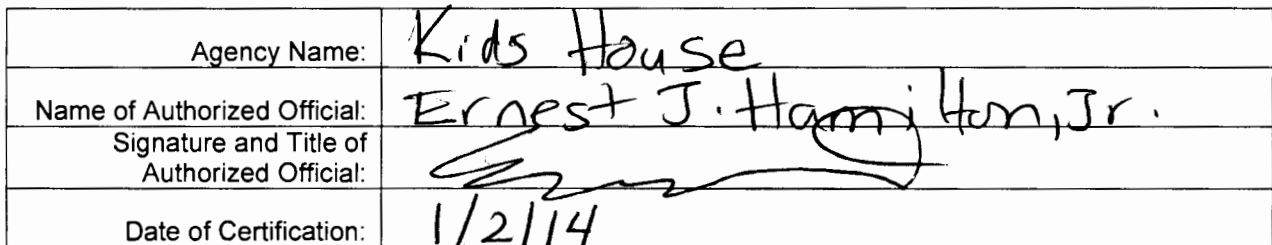 Agency Name: Kids House
Name of Authorized Official: Ernest J. Hamilton, Jr.
Signature and Title of
Authorized Official:
Date of Certification: 1/2/14